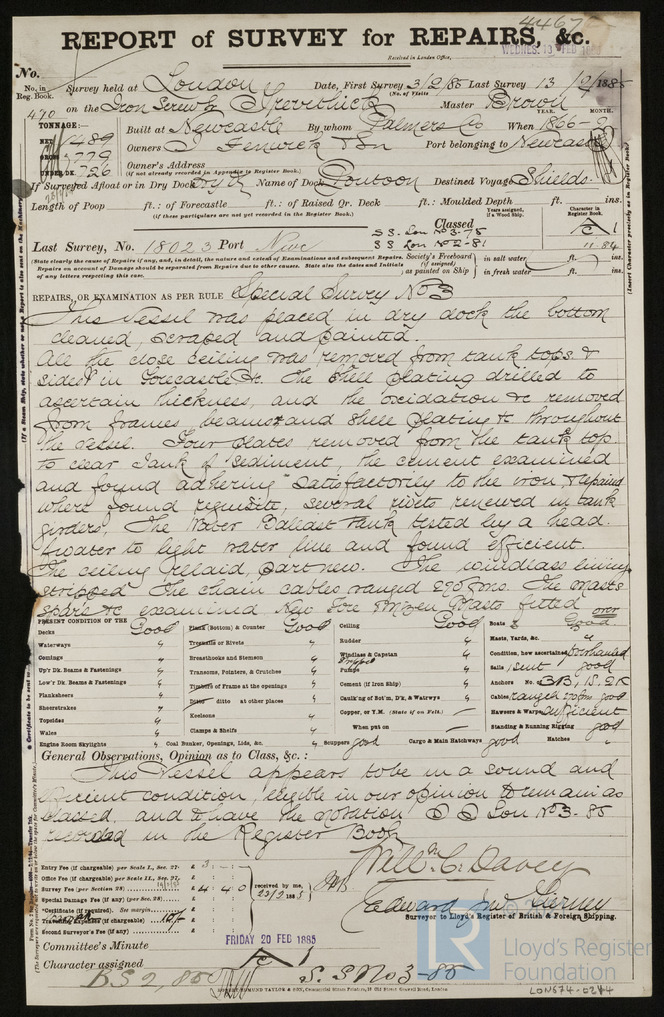 4467
REPORT of SURVEY for REPAIRS, &c.
Received in London Office,
WEDNES. 18 FEB
No.
No. in Reg. Book.
Survey held at London Date, First Survey 3/2/85 Last Survey 13/2/1885
(No. of Visits
470 on the Iron Screw Str Trevithick Master Brown
YEAR. MONTH.
TONNAGE:—
NET 489
GROSS 779
UNDER DK. 726
Built at Newcastle By whom Palmers Co When 1866-
Owners J Fenwick & Sn Port belonging to Newcastle
Owner's Address
(if not already recorded in Appendix to Register Book.)
If Surveyed Afloat or in Dry Dock Dry Dk Name of Dock Pontoon Destined Voyage Shields.
Length of Poop ft.: of Forecastle ft.: of Raised Qr. Deck ft.: Moulded Depth ft. ins.
(if these particulars are not yet recorded in the Register Book.)
Years assigned, if a Wood Ship.
Character in Register Book.
Classed
SS. Lon No 3-75
SS Lon No 2-81
A 1
11.84
Last Survey, No. 18023 Port Nwc
(State clearly the cause of Repairs if any, and, in detail, the nature and extent of Examinations and subsequent Repairs.
Repairs on account of Damage should be separated from Repairs due to other causes. State also the dates and Initials
of any letters respecting this case.)
Society's Freeboard (if assigned) as painted on Ship
in salt water ft. ins.
in fresh water ft. ins.
REPAIRS, OR EXAMINATION AS PER RULE Special Survey No 3
This Vessel was placed in dry dock the bottom
cleaned, scraped and painted.
All the close ceiling was removed from tank tops &
sides in Forecastle &c. The Shell plating drilled to
ascertain thickness, and the oxidation &c removed
from frames, beams and Shell plating &c throughout
the vessel. Four plates removed from the tank top
to clear Tank of Sediment, the cement examined
and found adhering satisfactorily to the iron, & repaired
where found requisite, several rivets renewed in tank
girders, The Water Ballast Tank tested by a head
water to light water line and found efficient.
The ceiling relaid, part new. The windlass lining
stripped The chain cables ranged 270 fms. The masts
spars &c examined New Fore & Mizen Masts fitted over
PRESENT CONDITION OF THE
Decks Good
Waterways "
Comings "
Up'r Dk. Beams & Fastenings "
Low'r Dk. Beams & Fastenings "
Planksheers "
Sheerstrakes "
Topsides "
Wales "
Engine Room Skylights "
Plank (Bottom) & Counter Good
Treenails or Rivets "
Breasthooks and Stemson "
Transoms, Pointers, & Crutches "
Timbers of Frame at the openings "
Ditto ditto at other places "
Keelsons "
Clamps & Shelfs "
Coal Bunker, Openings, Lids, &c. "
Ceiling Good
Rudder "
Windlass & Capstan "
Pumps "
Cement (if Iron Ship) "
Caulk'ng of Bot'm, D'k, & Watrwys "
Copper, or Y.M. (State if on Felt.) —
When put on —
Scuppers good Cargo & Main Hatchways good
Boats Good
Masts, Yards, &c. "
Condition, how ascertained, overhauled
Sails good
Anchors No. 3B, 1S, 2K
Cables ranged 270 fm good
Hawsers & Warps sufficient
Standing & Running Rigging good
Hatches "
General Observations, Opinion as to Class, &c.:
This Vessel appears to be in a sound and
efficient condition, eligible in our opinion to remain as
classed, and to have the notation S S Lon No 3-85
recorded in the Register Book
Entry Fee (if chargeable) per Scale I., Sec. 27. £ 3 : :
Office Fee (if chargeable) per Scale II., Sec. 27. £ : :
Survey Fee (per Section 28) £ 4 : 4 : 0
Special Damage Fee (if any) (per Sec. 28) £ : :
*Certificate (if required). See margin.
Travelling Expenses (if chargeable) 10/-
Second Surveyor's Fee (if any) £ : :
received by me,
23/2/1885
Willm C. Davey
Edward Jno Tierney
Surveyor to Lloyd's Register of British & Foreign Shipping.
Committee's Minute FRIDAY 20 FEB 1885
Character assigned A 1
BS 2, 85 S. S No 3-85
Lloyd's Register
Foundation
LON674-0244